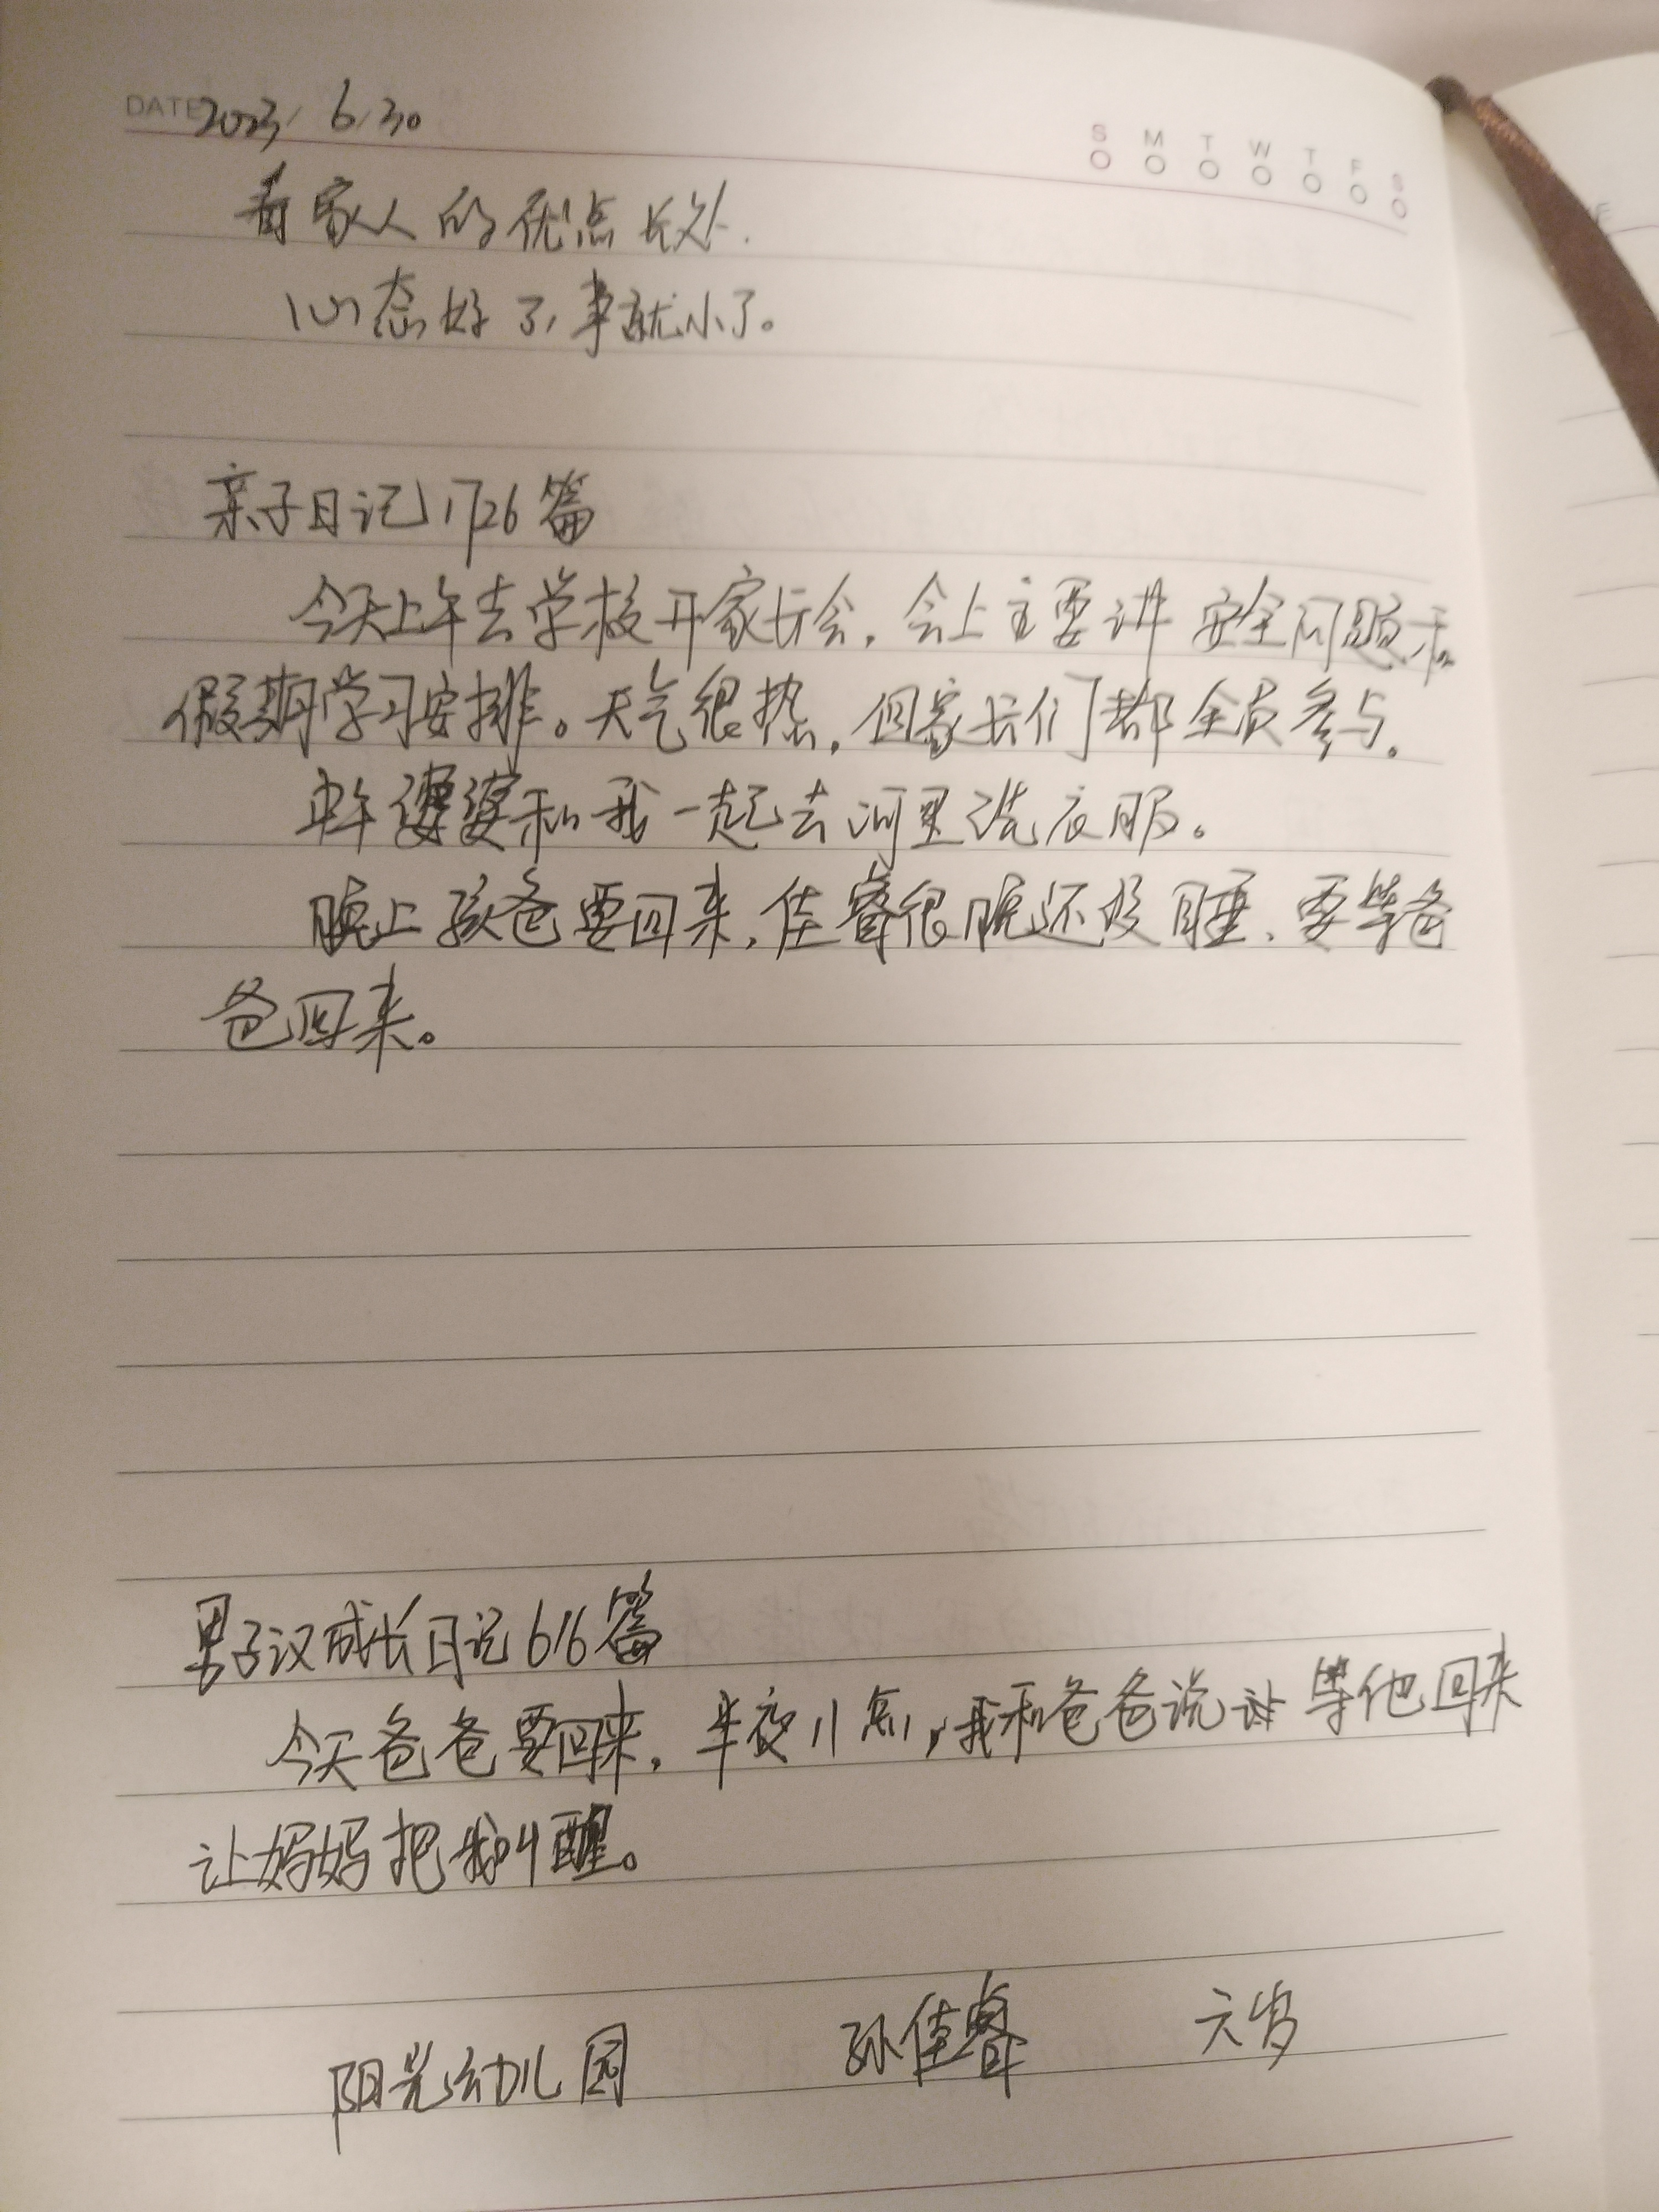 DATE 2023/6/30
S M T W T F S
看家人的优点长处.
心态好了,事就小了。
亲子日记1726篇
今天上午去学校开家长会,会上主要讲安全问题和
假期学习安排。天气很热,但家长们都全员参与。
中午婆婆和我一起去河里洗衣服。
晚上孩爸要回来,佳睿很晚还没睡、要等爸
爸回来。
男子汉成长日记616篇
今天爸爸要回来,半夜11点,我和爸爸说让等他回来
让妈妈把我叫醒。
阳光幼儿园 孙佳睿 六岁